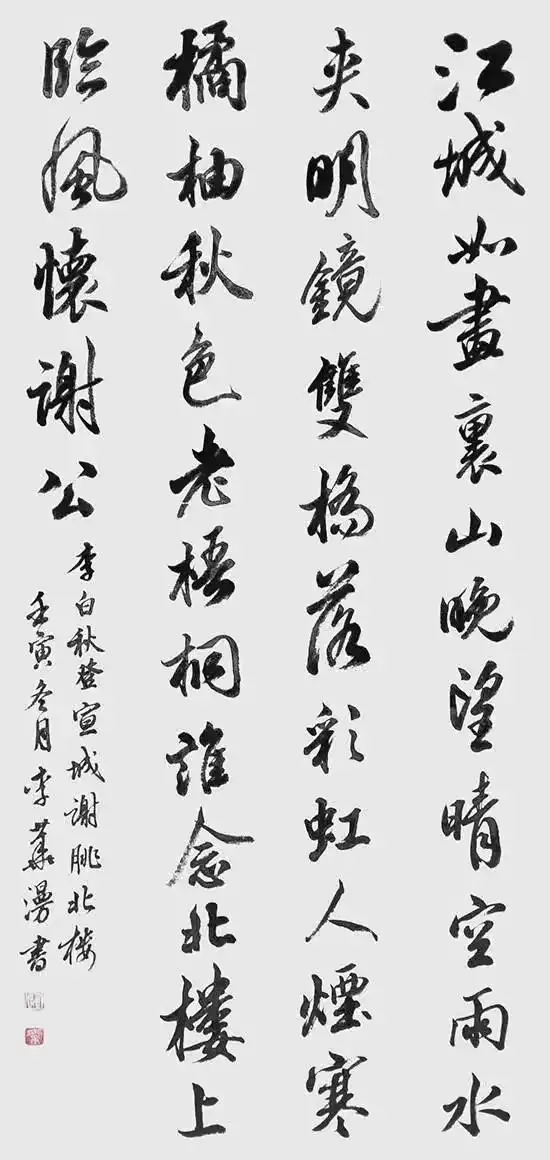 江城如畫裏山晚望晴空兩水
夾明鏡雙橋落彩虹人煙寒
橘柚秋色老梧桐誰念北樓上
臨風懷謝公
李白秋登宣城謝朓北樓
壬寅冬月李漫書